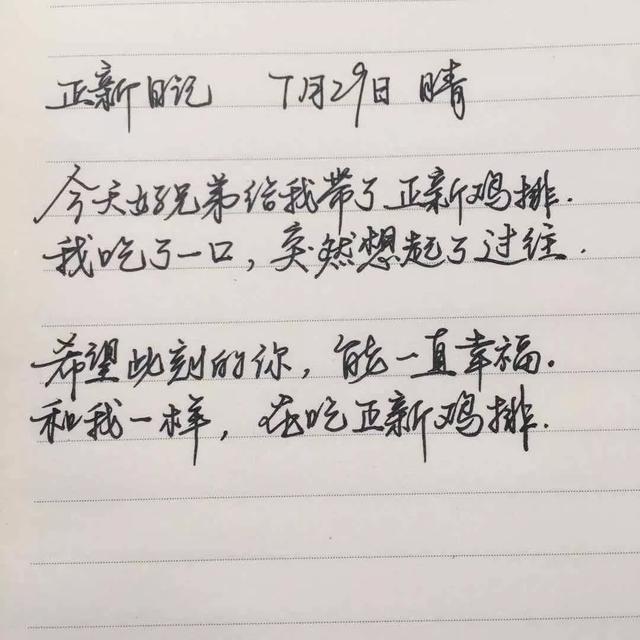 正新日记 7月29日 晴
今天好兄弟给我带了正新鸡排.
我吃了一口,突然想起了过往.
希望此刻的你,能一直幸福.
和我一样,在吃正新鸡排.